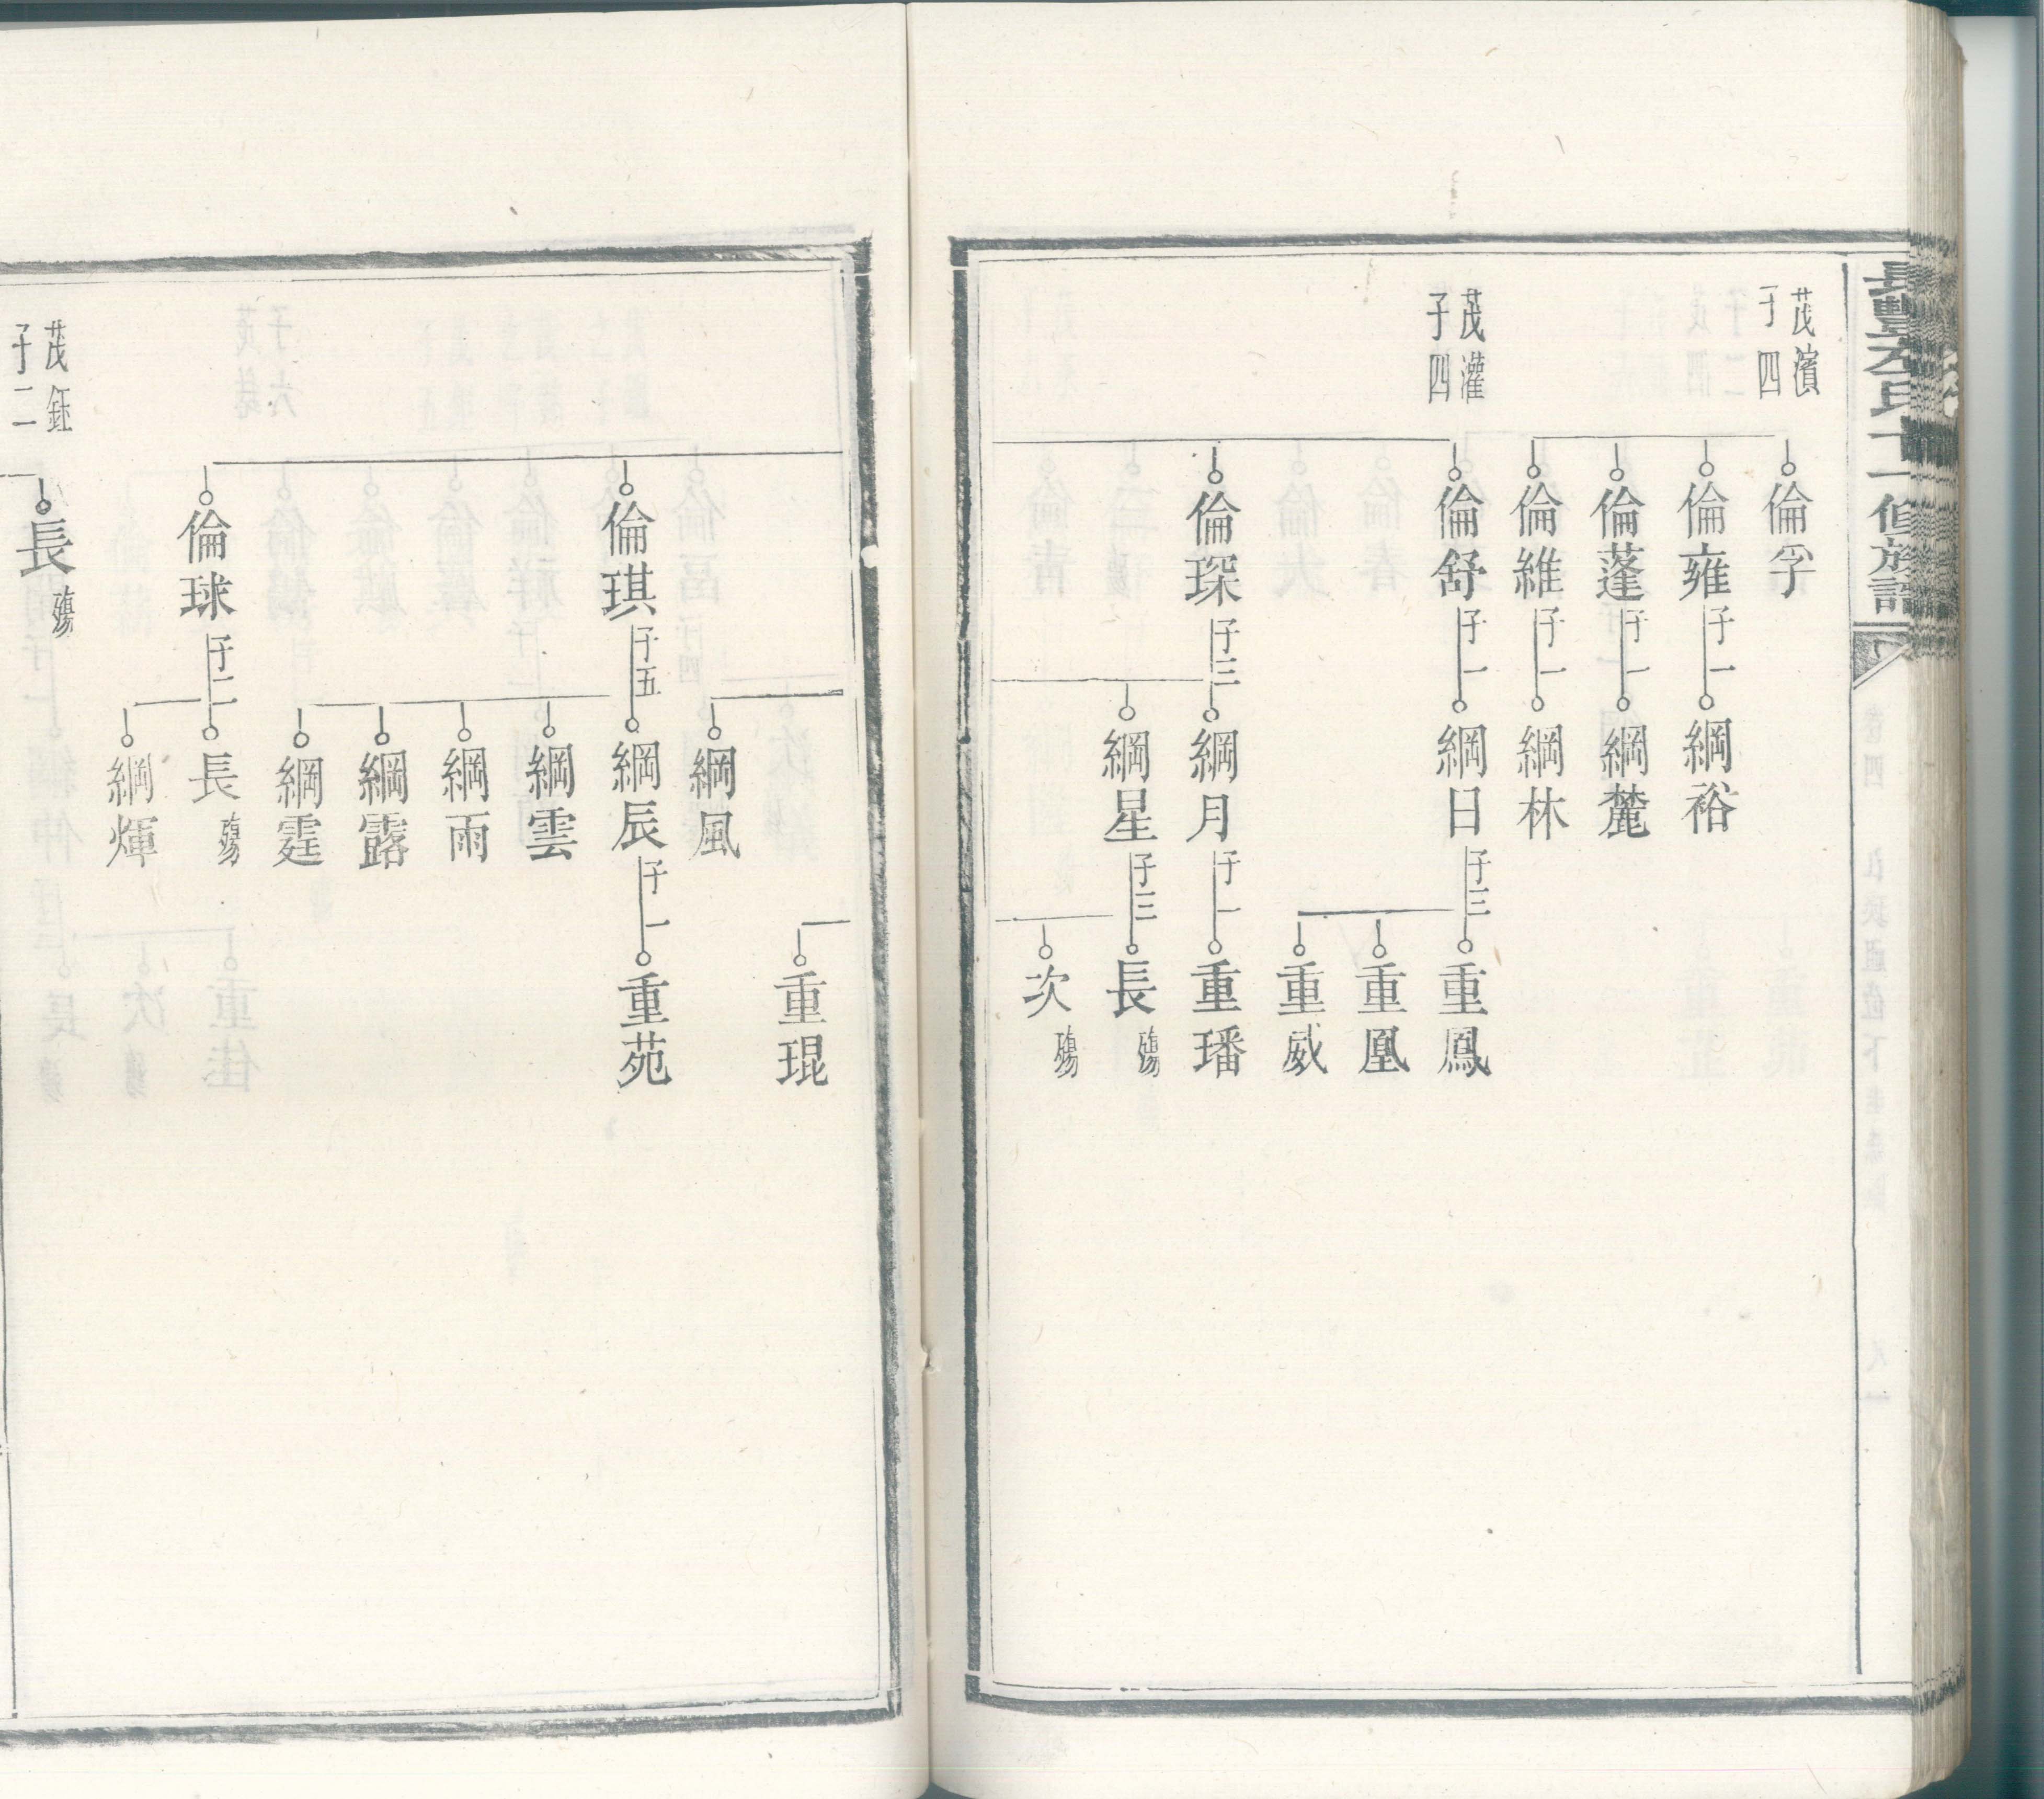 茂濱
子四
倫孚
倫雍
子一
綱裕
倫蓬
子一
綱麓
倫維
子一
綱林
茂灌
子四
倫舒
子一
綱日
子三
重鳳
重凰
重威
倫琛
子三
綱月
子一
重璠
綱星
子三
長殤
次殤
重琨
綱風
倫琪
子五
綱辰
子一
重苑
綱雲
綱雨
綱露
綱霆
倫球
子二
長殤
綱煇
茂鈺
子二
長殤